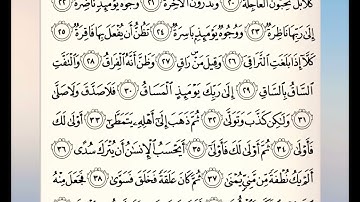 كَلَّا بَلْ تُحِبُّونَ الْعَاجِلَةَ ۝٢٠ وَتَذَرُونَ الْآخِرَةَ ۝٢١ وُجُوهٌ يَوْمَئِذٍ نَّاضِرَةٌ ۝٢٢
إِلَىٰ رَبِّهَا نَاظِرَةٌ ۝٢٣ وَوُجُوهٌ يَوْمَئِذٍ بَاسِرَةٌ ۝٢٤ تَظُنُّ أَن يُفْعَلَ بِهَا فَاقِرَةٌ ۝٢٥
كَلَّا إِذَا بَلَغَتِ التَّرَاقِيَ ۝٢٦ وَقِيلَ مَنْ رَاقٍ ۝٢٧ وَظَنَّ أَنَّهُ الْفِرَاقُ ۝٢٨ وَالْتَفَّتِ
السَّاقُ بِالسَّاقِ ۝٢٩ إِلَىٰ رَبِّكَ يَوْمَئِذٍ الْمَسَاقُ ۝٣٠ فَلَا صَدَّقَ وَلَا صَلَّىٰ
۝٣١ وَلَٰكِن كَذَّبَ وَتَوَلَّىٰ ۝٣٢ ثُمَّ ذَهَبَ إِلَىٰ أَهْلِهِ يَتَمَطَّىٰ ۝٣٣ أَوْلَىٰ لَكَ
فَأَوْلَىٰ ۝٣٤ ثُمَّ أَوْلَىٰ لَكَ فَأَوْلَىٰ ۝٣٥ أَيَحْسَبُ الْإِنسَانُ أَن يُتْرَكَ سُدًى ۝٣٦
أَلَمْ يَكُ نُطْفَةً مِّن مَّنِيٍّ يُمْنَىٰ ۝٣٧ ثُمَّ كَانَ عَلَقَةً فَخَلَقَ فَسَوَّىٰ ۝٣٨ فَجَعَلَ مِنْهُ